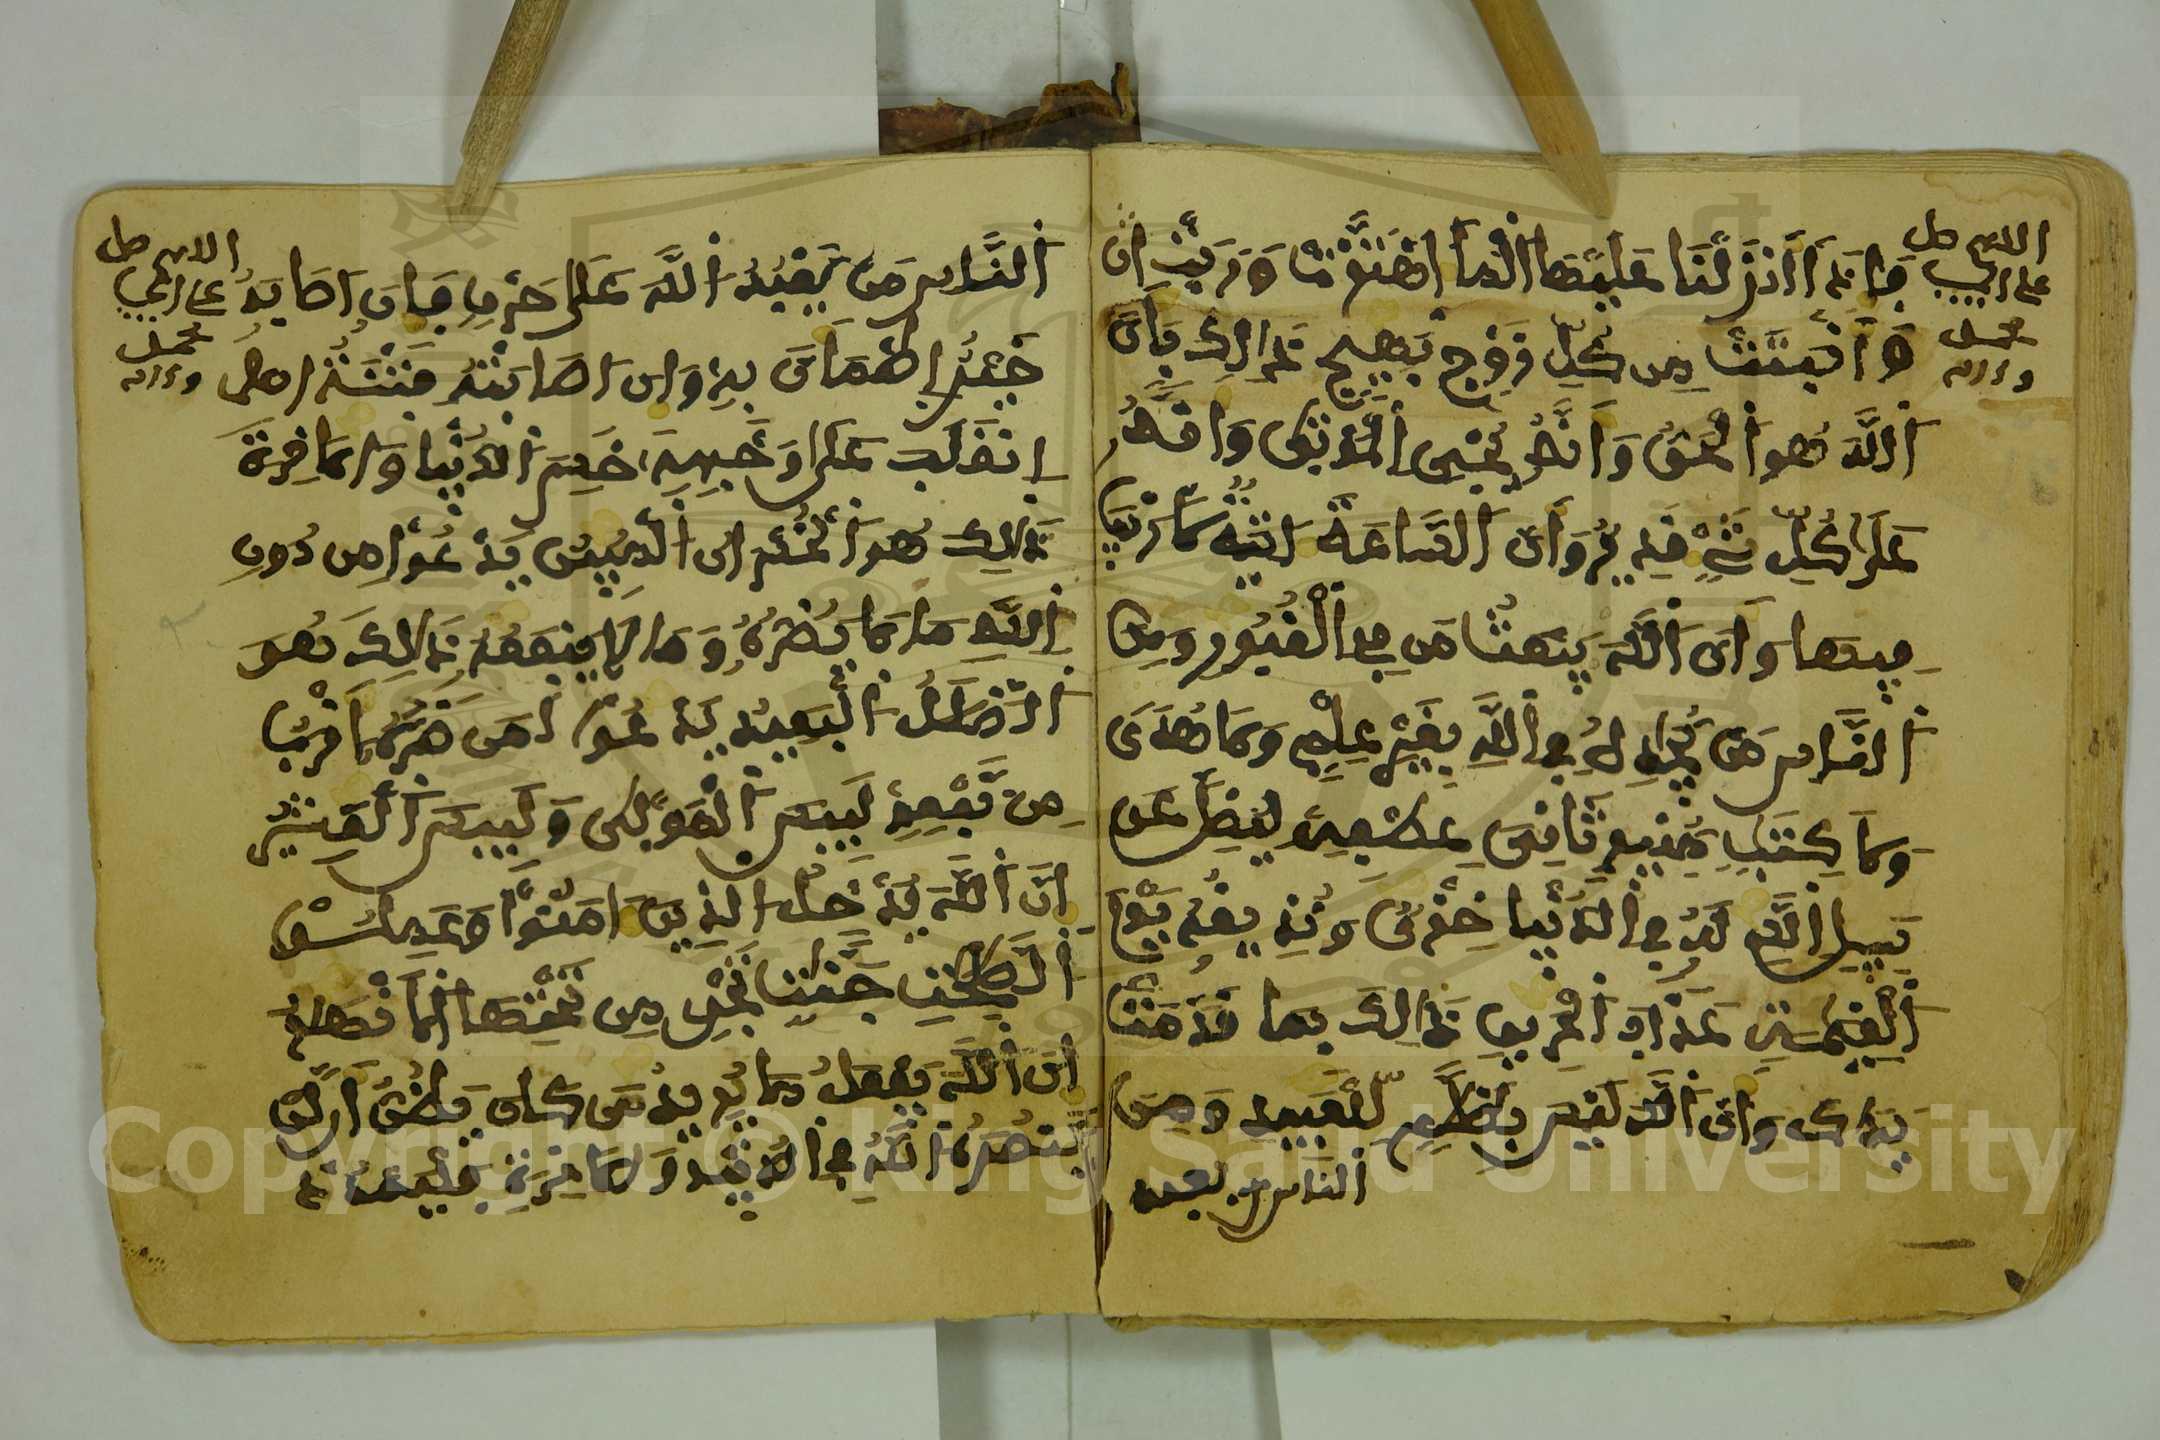 اللهم صل
على النبي
محمد
وءاله
فإذا أنزلنا عليها الماء اهتزت وربت
وأنبتت من كل زوج بهيج ذالك بأن
الله هو الحق وأنه يحي الموتى وأنه
على كل شيء قدير وأن الساعة ءاتية لا ريب
فيها وأن الله يبعث من في القبور ومن
الناس من يجادل في الله بغير علم ولا هدى
ولا كتب منير ثاني عطفه ليضل عن
سبيل الله له في الدنيا خزي ونذيقه يوم
القيمة عذاب الحريق ذالك بما قدمت
يداك وأن الله ليس بظلم للعبيد ومن
الناس من يعبد
اللهم صل
على النبي
محمد
وءاله
الناس من يعبد الله على حرف فإن أصابه
خير اطمأن به وإن أصابته فتنة
انقلب على وجهه خسر الدنيا والاخرة
ذالك هو الخسران المبين يدعوا من دون
الله ما لا يضره وما لا ينفعه ذالك هو
الضلل البعيد يدعوا لمن ضره أقرب
من نفعه لبيس المولى ولبيس العشير
إن الله يدخل الذين ءامنوا وعملوا
الصلحت جنت تجري من تحتها الأنهر
إن الله يفعل ما يريد من كان يظن أن لن
ينصره الله في الدنيا والاخرة فليمدد